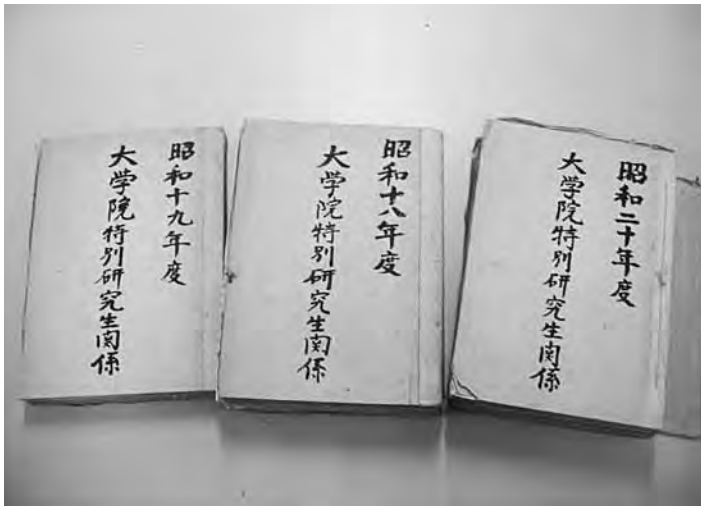 昭和十九年度
大学院特別研究生関係
昭和十八年度
大学院特別研究生関係
昭和二十年度
大学院特別研究生関係